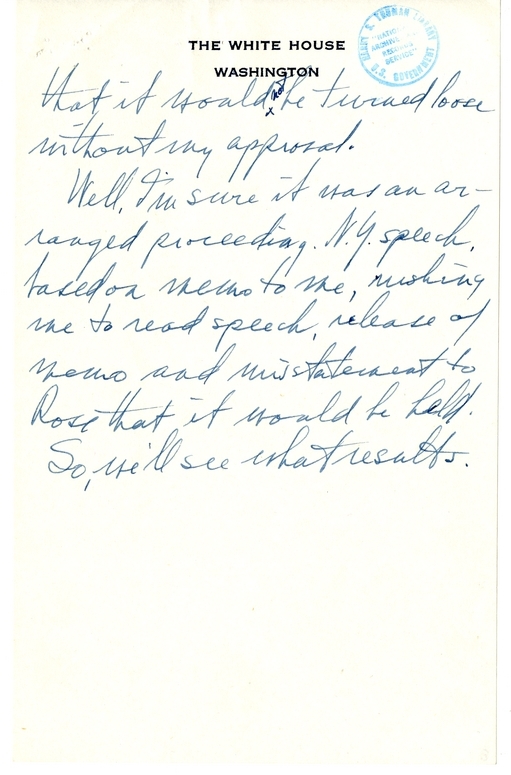 THE WHITE HOUSE
WASHINGTON
HARRY S. TRUMAN LIBRARY
"NATIONAL
ARCHIVES AND
RECORDS
SERVICE"
U.S. GOVERNMENT
that it would not be turned loose
without my approval.
Well, I'm sure it was an ar-
ranged proceeding. N.Y. speech,
based on memo to me, rushing
me to read speech, release of
memo and misstatement to
Ross that it would be held.
So, we'll see what results.